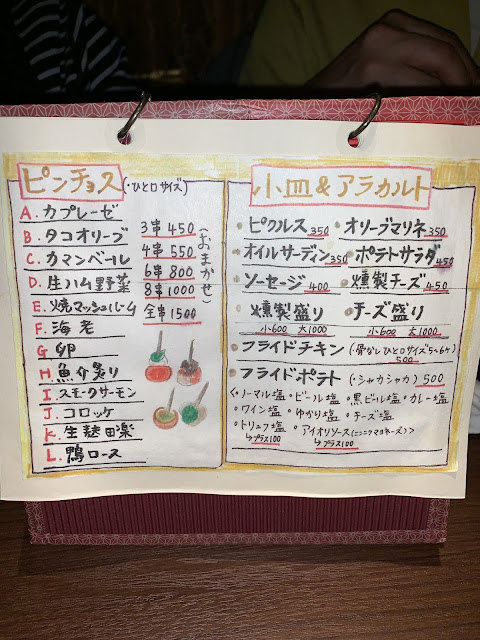 ピンチョス(・ひと口サイズ)
A. カプレーゼ
B. タコオリーブ
C. カマンベール
D. 生ハム野菜
E. 焼マッシュルーム
F. 海老
G 卵
H. 魚介炙り
I. スモークサーモン
J. コロッケ
K. 生麩田楽
L. 鴨ロース
3串 450
4串 550
6串 800
8串 1000
全串 1500
(おまかせ)
小皿&アラカルト
・ピクルス 350 ・オリーブマリネ 350
・オイルサーディン 350 ・ポテトサラダ 450
・ソーセージ 400 ・燻製チーズ 450
・燻製盛り ・チーズ盛り
小600 大1000 小600 大1000
・フライドチキン(・骨なしひと口サイズ5~6ケ)
500
・フライドポテト(・シャカシャカ) 500
<・ノーマル塩 ・ビール塩 ・黒ビール塩 ・カレー塩
・ワイン塩 ・ゆかり塩 ・チーズ塩
・トリュフ塩 ・アイオリソース(ニンニクマヨネーズ)>
↳プラス100 ↳プラス100